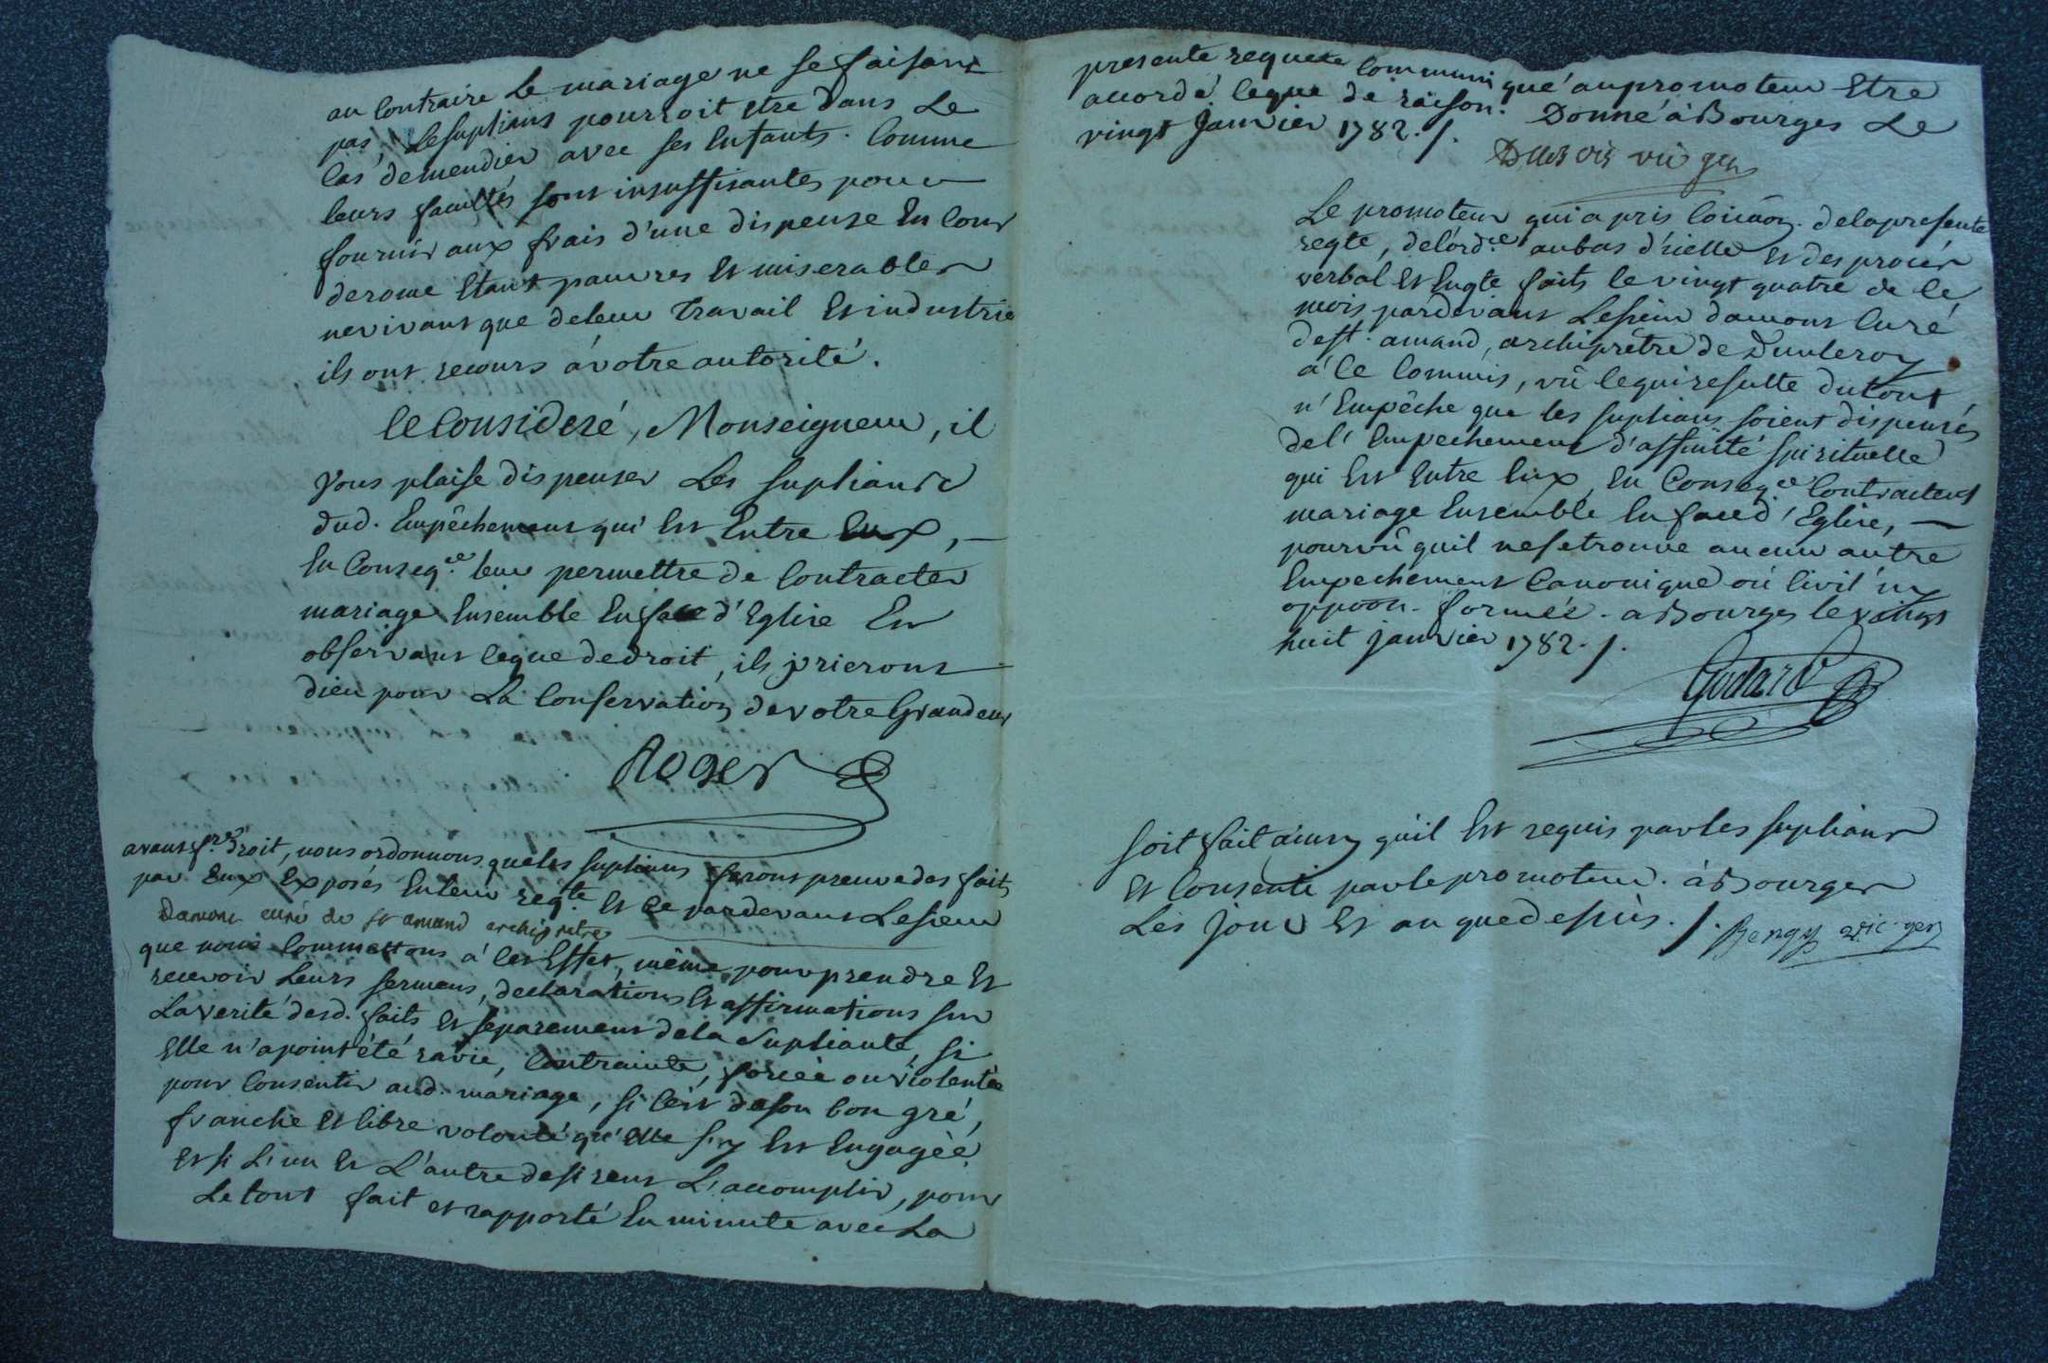 au contraire le mariage ne se faisant
pas, le supliant pourroit etre dans le
cas de mendier avec ses enfants. Comme
leurs facultés sont insuffisantes pour
fournir aux frais d'une dispense en cour
de rome etant pauvres et miserables
ne vivant que de leur travail et industrie
ils ont recours à votre autorité.
Ce Consideré, Monseigneur, il
vous plaise dispenser les supliants
dud. Empêchement qui est entre eux,
en Conseq.ce leur permettre de contracter
mariage ensemble en face d'Eglise en
observant ce que de droit, ils prieront
dieu pour la conservation de votre Grandeur
Roger
avant f.re droit, nous ordonnons que les supliants feront preuve des faits
par eux exposés en leur reqte. et ce pardevant le sieur
Damont curé de st amand archiprêtre
que nous commettons à cet effet, même pour prendre et
recevoir leurs sermens, declarations et affirmations sur
la verité desd. faits et separement de la supliante, si
elle n'a point été ravie, contrainte, forcée ou violentée
pour consentir aud. mariage, si c'est de son bon gré,
franche et libre volonté qu'elle s'y est engagée
et si l'un et l'autre desirent l'accomplir, pour
le tout fait et rapporté en minute avec la
presente requete communiqué au promoteur etre
accordé ce que de raison. Donné à Bourges le
vingt janvier 1782./.
vic gen
Le promoteur qui a pris coīcaōn. de la presente
reqte, de l'ord.ce au bas d'icelle et des procès
verbal et enqte faits le vingt quatre de ce
mois pardevant le sieur damont curé
de st. amand, archiprêtre de Dunleroy
à ce commis, vû ce qui resulte du tout
n'empêche que les supliants soient dispensés
de l'empechement d'affinité spirituelle
qui est entre eux, en Conseq.ce contractent
mariage ensemble en face d'Eglise,
pourvû qu'il ne se trouve aucun autre
empechement canonique ou civil n'y
oppoōn. formée. a Bourges le vingt
huit janvier 1782./.
Godard
soit fait ainsy qu'il est requis par les supliants
et consenti par le promoteur. à Bourges
les jour et an que dessus./. vic. gen